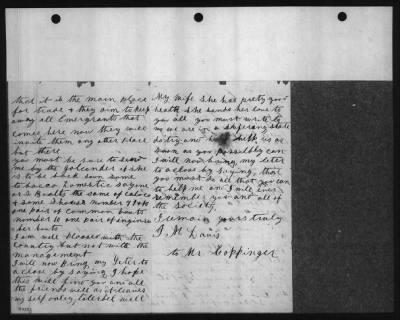 that it is the main place
for trade & they aim to keep
away all Emergrants that
comes here now they will
invite them any other place
but there
you must be sure to
me by the if she
is to be back soon some
tobacco Domestic so some
as I Bought the same of calico
& some shoes number 9 &
one pair of common boots
number 10 and one pair
boots
I am well pleased with the
Country but not with the
management
I will now bring my letter to
a close by saying I hope
this will find you and all
the friends well as it leaves
my self only, well
My wife she has pretty good
health she sends her love to
you all you must write to
me we are in a suffering state
do try and help us as
soon as you possibly can
I will now bring my letter
to a close by saying, that
you must do all that you can
to help me an I will ever
remember you and all of
the Society
I remain yours truly
J. H. Davis
to Mr Coppinger